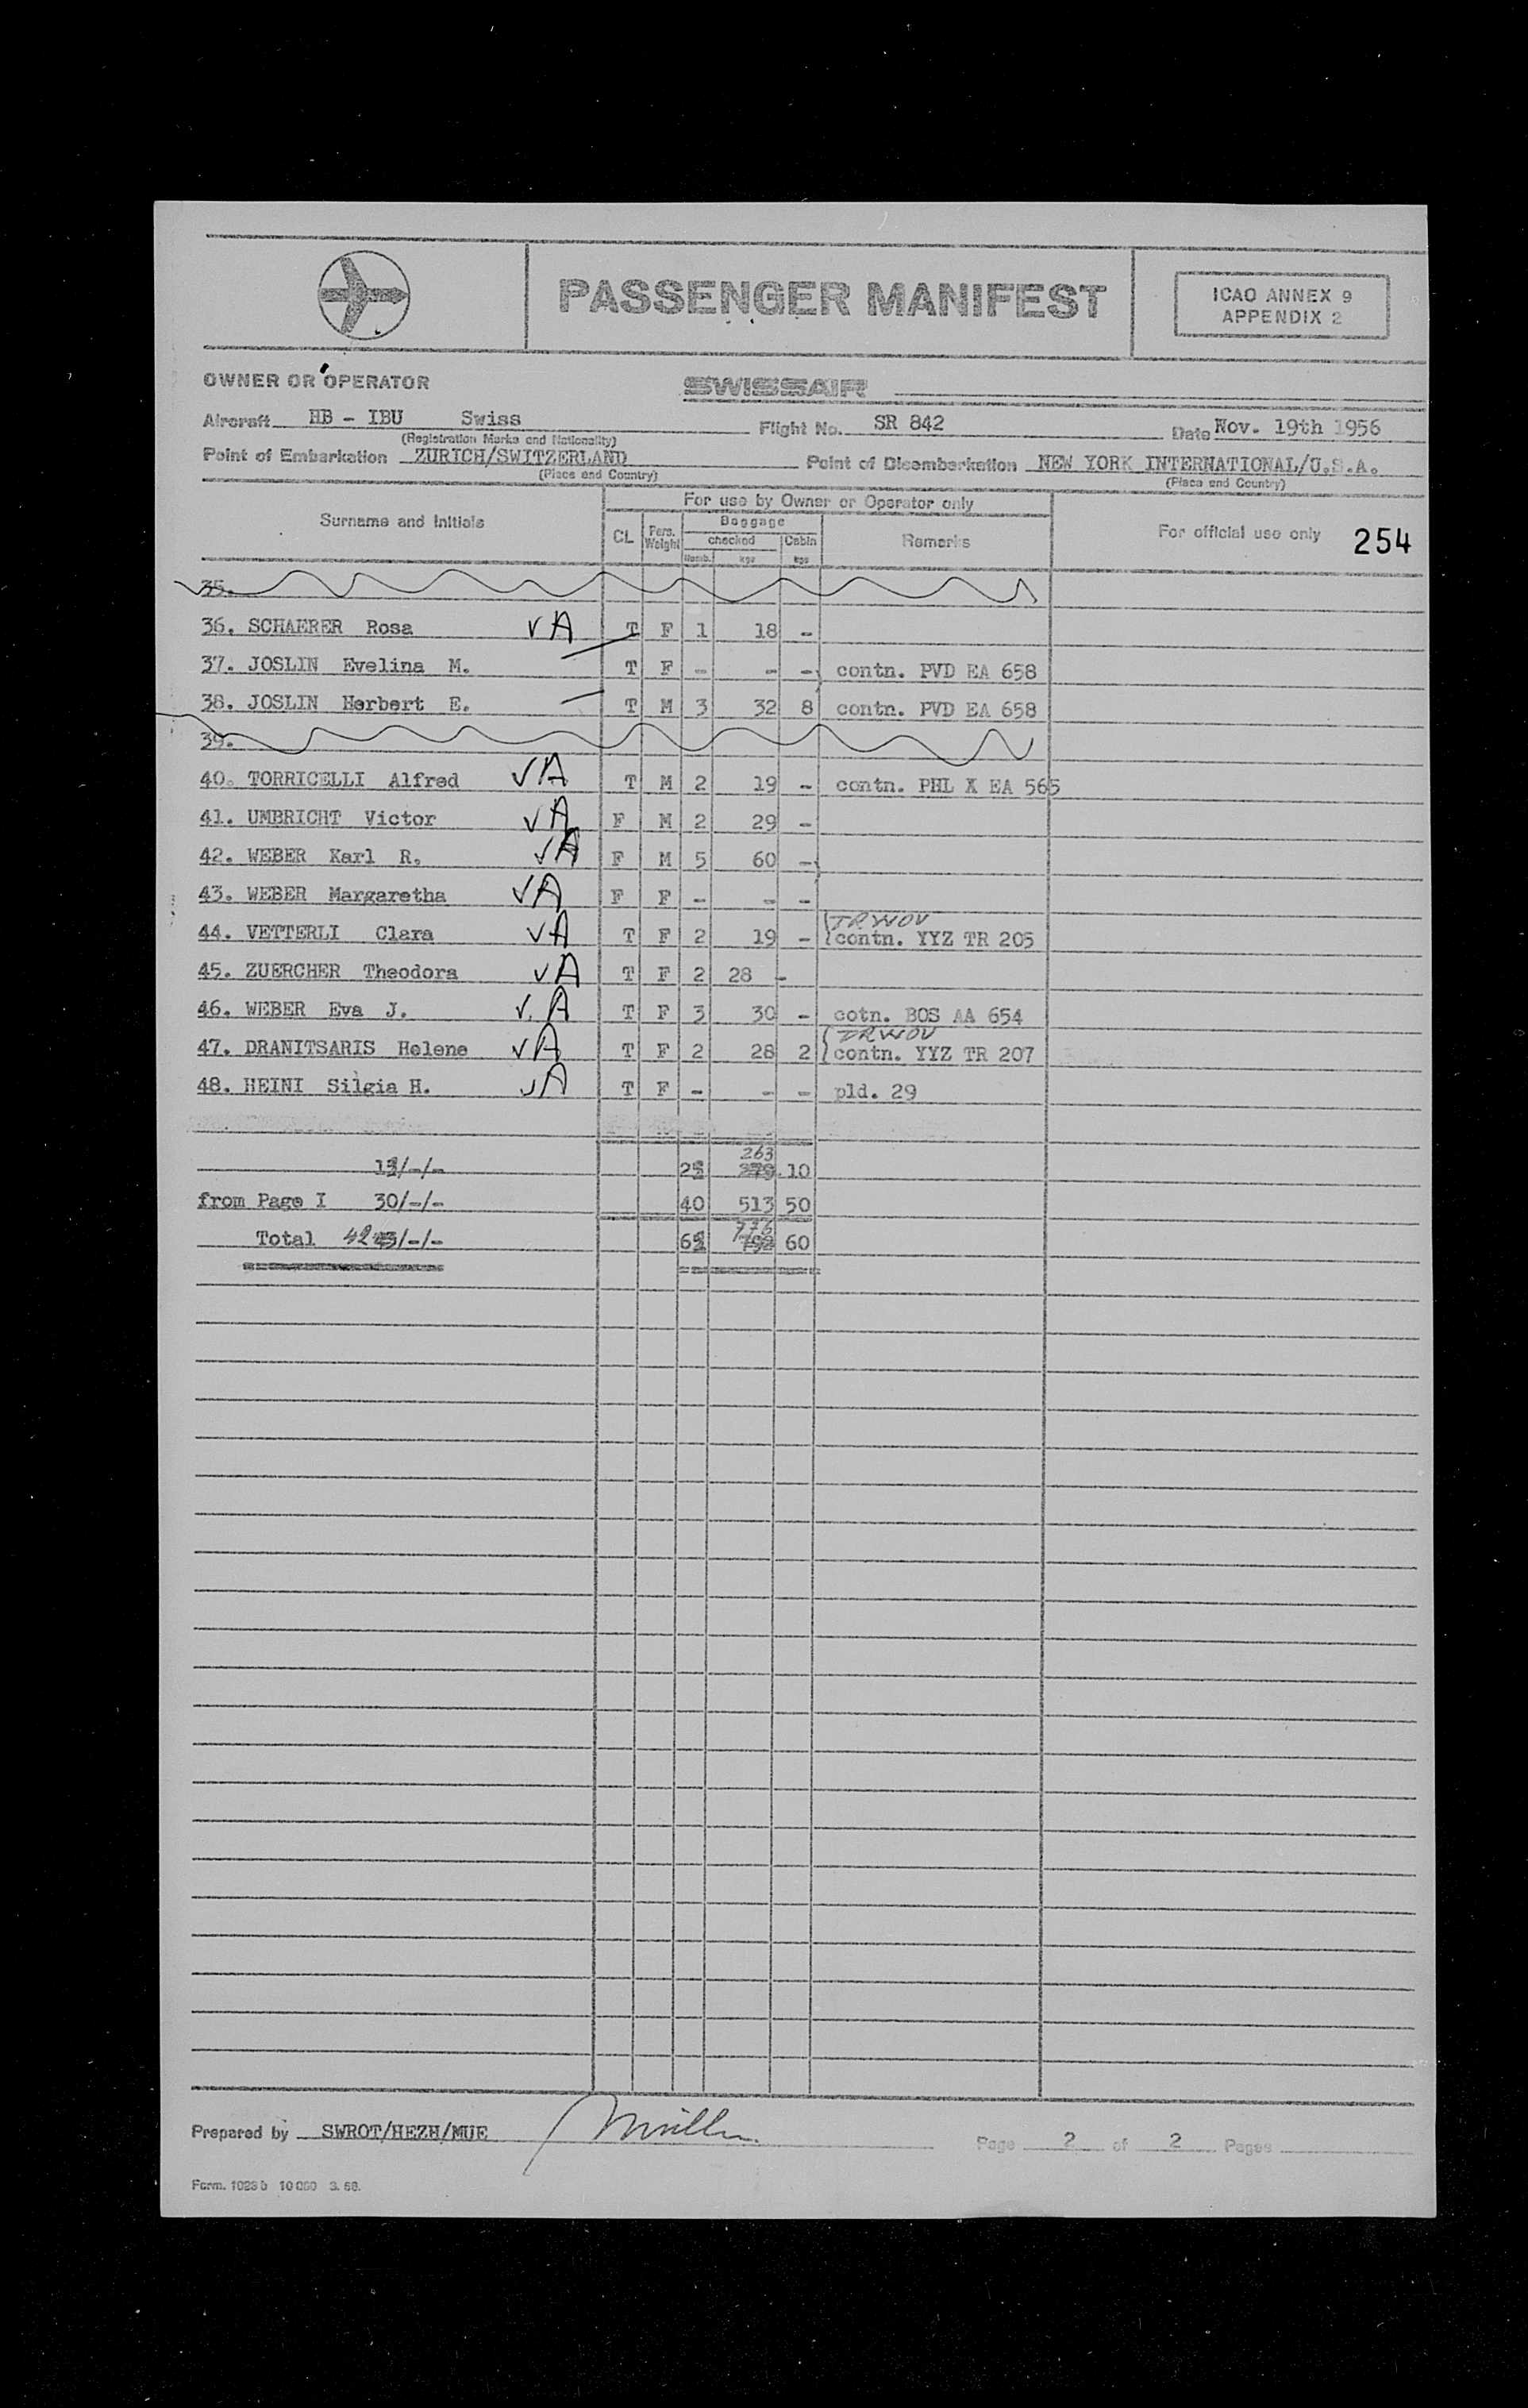 PASSENGER MANIFEST
ICAO ANNEX 9
APPENDIX 2
OWNER OR OPERATOR SWISSAIR
Aircraft HB - IBU Swiss Flight No. SR 842 Date Nov. 19th 1956
(Registration Marks and Nationality)
Point of Embarkation ZURICH/SWITZERLAND Point of Disembarkation NEW YORK INTERNATIONAL/U.S.A.
(Place and Country) (Place and Country)
Surname and Initials For use by Owner or Operator only For official use only 254
CL Pers. Weight Baggage checked Numb. kgs Cabin kgs Remarks
35.
36. SCHAERER Rosa VA T F 1 18 -
37. JOSLIN Evelina M. T F - - - contn. PVD EA 658
38. JOSLIN Herbert E. T M 3 32 8 contn. PVD EA 658
39.
40. TORRICELLI Alfred VA T M 2 19 - contn. PHL X EA 565
41. UMBRICHT Victor VA F M 2 29 -
42. WEBER Karl R. VA F M 5 60 -
43. WEBER Margaretha VA F F - - -
TRWOV
44. VETTERLI Clara VA T F 2 19 - contn. YYZ TR 205
45. ZUERCHER Theodora VA T F 2 28 -
46. WEBER Eva J. V. A T F 3 30 - cotn. BOS AA 654
TRWOV
47. DRANITSARIS Helene VA T F 2 28 2 contn. YYZ TR 207
48. HEINI Silgia H. VA T F - - - pld. 29
263
/-/- 10
from Page I 30/-/- 40 513 50
776
Total 42 /-/- 792 60
Prepared by SWROT/HEZH/MUE Page 2 of 2 Pages
Form. 1023 b